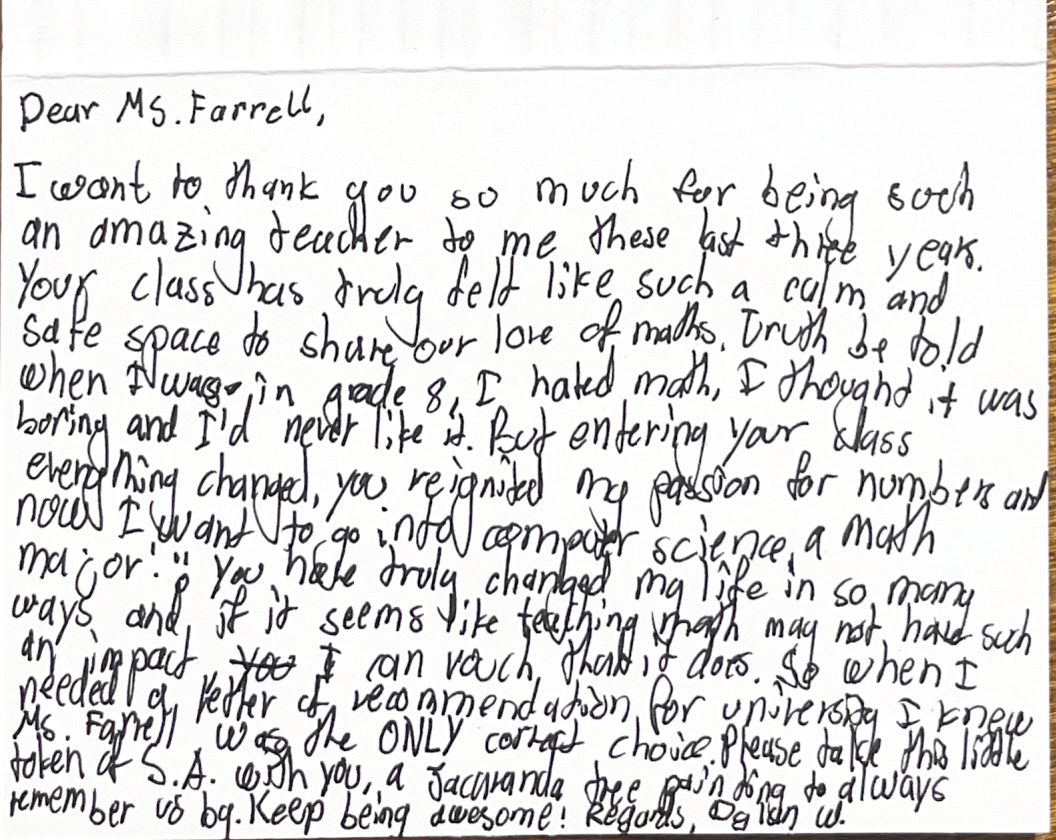 Dear Ms. Farrell,
I want to thank you so much for being such
an amazing teacher to me these last three years.
Your class has truly felt like such a calm and
safe space to share our love of maths. Truth be told
when I was in grade 8, I hated math, I thought it was
boring and I'd never like it. But entering your class
everything changed, you reignited my passion for numbers and
now I want to go into computer science, a math
major! You have truly changed my life in so many
ways and, if it seems like teaching math may not have such
an impact I can vouch that it does. So when I
needed a letter of recommendation for university I knew
Ms. Farrell was the ONLY correct choice. Please take this little
token of S.A. with you, a Jacaranda tree painting to always
remember us by. Keep being awesome! Regards, W.